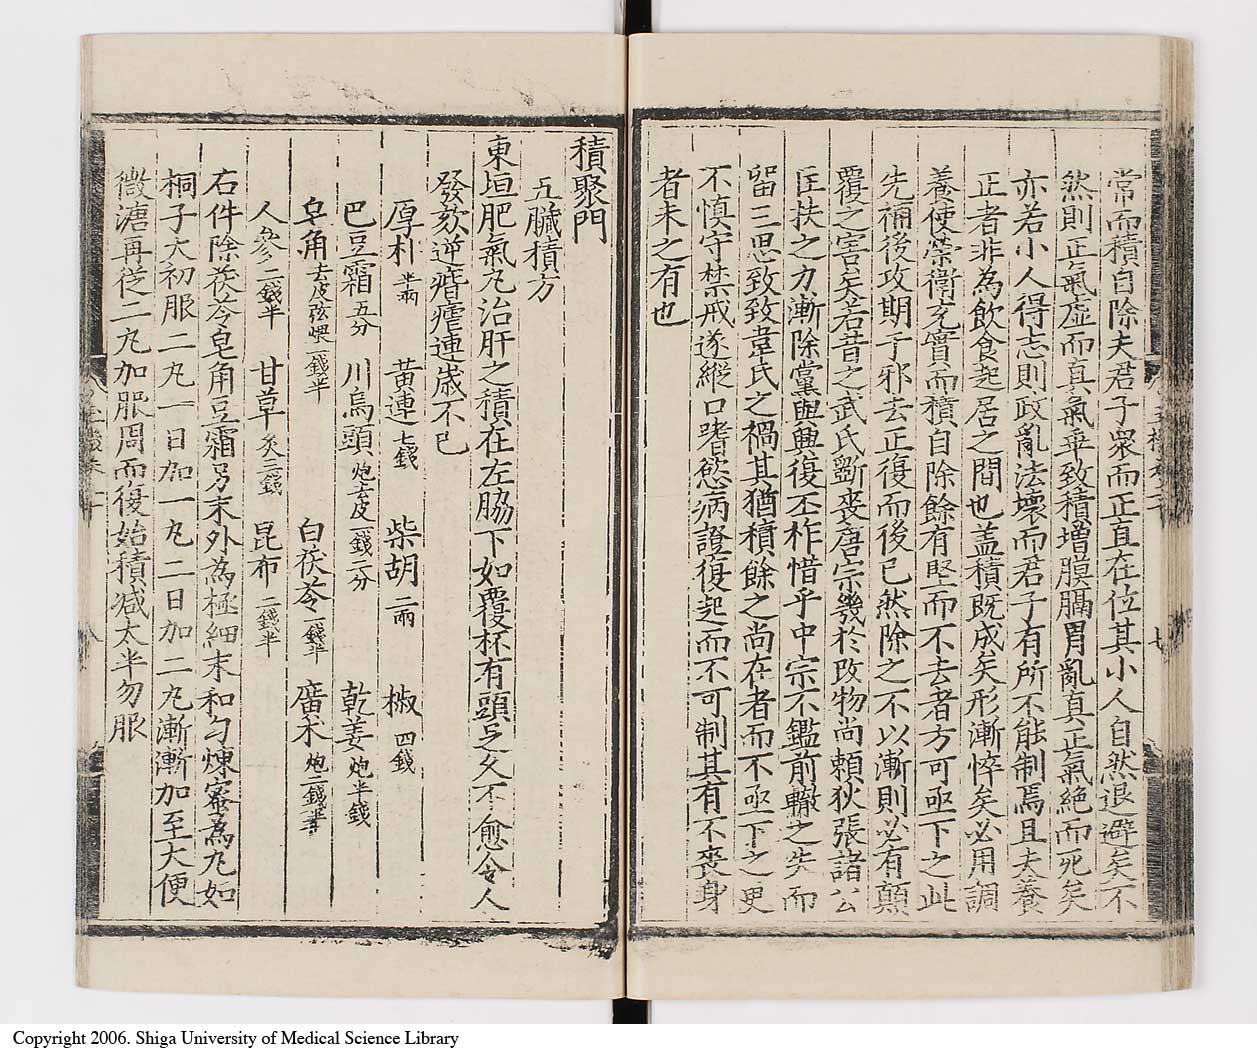 常而積自除夫君子衆而正直在位其小人自然退避矣不
然則正氣虛而真氣卒致積增膜膈胃亂真正氣絕而死矣
亦若小人得志則政亂法壞而君子有所不能制焉且夫養
正者非為飲食起居之間也盖積既成矣形漸悴矣必用調
養使榮衛充實而積自除餘有堅而不去者方可亟下之此
先補後攻期于邪去正復而後已然除之不以漸則必有顛
覆之害矣若昔之武氏斵喪唐宗幾於改物尚賴狄張諸公
匡扶之力漸除黨與興復丕柞惜乎中宗不鑑前轍之失而
留三思致致韋氏之禍其猶積餘之尚在者而不亟下之更
不慎守禁戒遂縱口嗜慾病證復起而不可制其有不喪身
者未之有也
積聚門
五臟積方
東垣肥氣丸治肝之積在左脇下如覆杯有頭足久不愈令人
發欬逆瘄瘧連歲不已
厚朴半兩 黃連七錢 柴胡二兩 椒四錢
巴豆霜五分 川烏頭炮去皮一錢二分 乾姜炮半錢
皂角去皮弦煨一錢半 白茯苓一錢半 廣朮炮二錢半
人參二錢半 甘草炙二錢 昆布二錢半
右件除茯苓皂角豆霜另末外為極細末和勻煉蜜為丸如
桐子大初服二丸一日加一丸二日加二丸漸漸加至大便
微溏再從二丸加服周而復始積减太半勿服
Copyright 2006. Shiga University of Medical Science Library